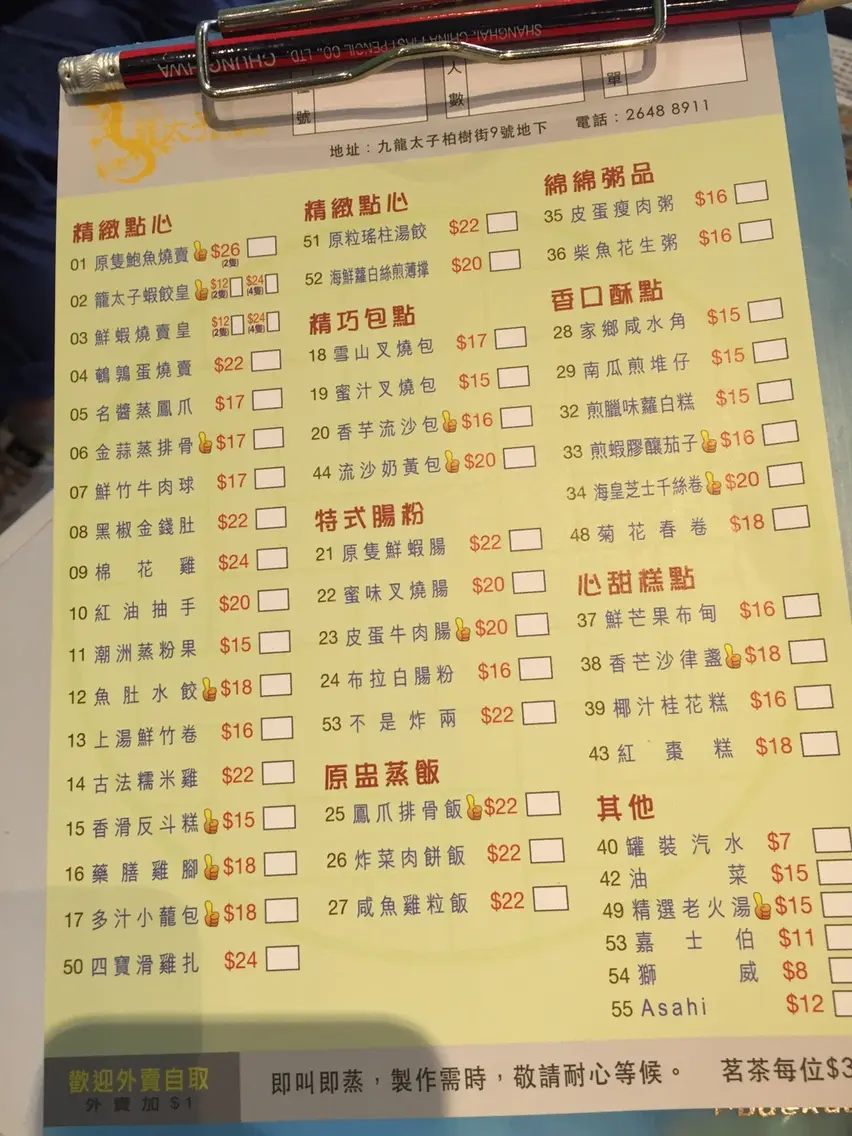 CHUNGHWA
SHANGHAI, CHINA FIRST PENCIL CO., LTD.
號
人
數
單
太子
地址：九龍太子柏樹街9號地下 電話：2648 8911
精緻點心
01 原隻鮑魚燒賣 $26 (2隻)
02 籠太子蝦餃皇 $12 (2隻) $24 (4隻)
03 鮮蝦燒賣皇 $12 (2隻) $24 (4隻)
04 鵪鶉蛋燒賣 $22
05 名醬蒸鳳爪 $17
06 金蒜蒸排骨 $17
07 鮮竹牛肉球 $17
08 黑椒金錢肚 $22
09 棉花雞 $24
10 紅油抽手 $20
11 潮洲蒸粉果 $15
12 魚肚水餃 $18
13 上湯鮮竹卷 $16
14 古法糯米雞 $22
15 香滑反斗糕 $15
16 藥膳雞腳 $18
17 多汁小蘢包 $18
50 四寶滑雞扎 $24
精緻點心
51 原粒瑤柱湯餃 $22
52 海鮮蘿白絲煎薄撐 $20
精巧包點
18 雪山叉燒包 $17
19 蜜汁叉燒包 $15
20 香芋流沙包 $16
44 流沙奶黃包 $20
特式腸粉
21 原隻鮮蝦腸 $22
22 蜜味叉燒腸 $20
23 皮蛋牛肉腸 $20
24 布拉白腸粉 $16
53 不是炸兩 $22
原盅蒸飯
25 鳳爪排骨飯 $22
26 炸菜肉餅飯 $22
27 咸魚雞粒飯 $22
綿綿粥品
35 皮蛋瘦肉粥 $16
36 柴魚花生粥 $16
香口酥點
28 家鄉咸水角 $15
29 南瓜煎堆仔 $15
32 煎臘味蘿白糕 $15
33 煎蝦膠釀茄子 $16
34 海皇芝士千絲卷 $20
48 菊花春卷 $18
心甜糕點
37 鮮芒果布甸 $16
38 香芒沙律盞 $18
39 椰汁桂花糕 $16
43 紅棗糕 $18
其他
40 罐裝汽水 $7
42 油菜 $15
49 精選老火湯 $15
53 嘉士伯 $11
54 獅威 $8
55 Asahi $12
歡迎外賣自取
外賣加$1
即叫即蒸，製作需時，敬請耐心等候。 茗茶每位$3